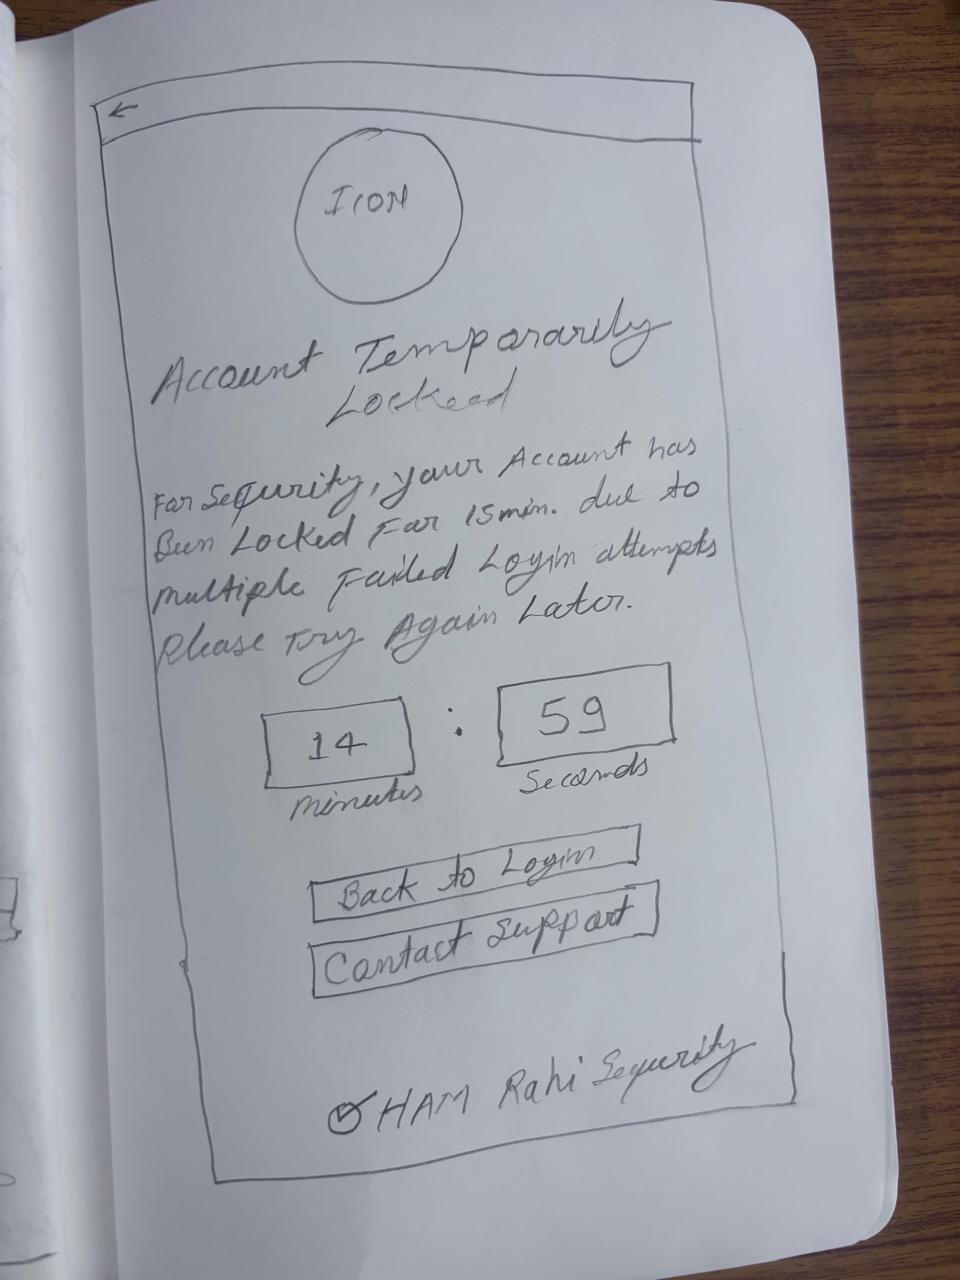 ←
ICON
Account Temporarily
Lockeed
For Sequrity, your Account has
Been Locked For 15min. due to
multiple Failed Login attempts
Please Try Again Later.
14 : 59
minutes Seconds
Back to Login
Contact Support
HAM Rahi Sequrity